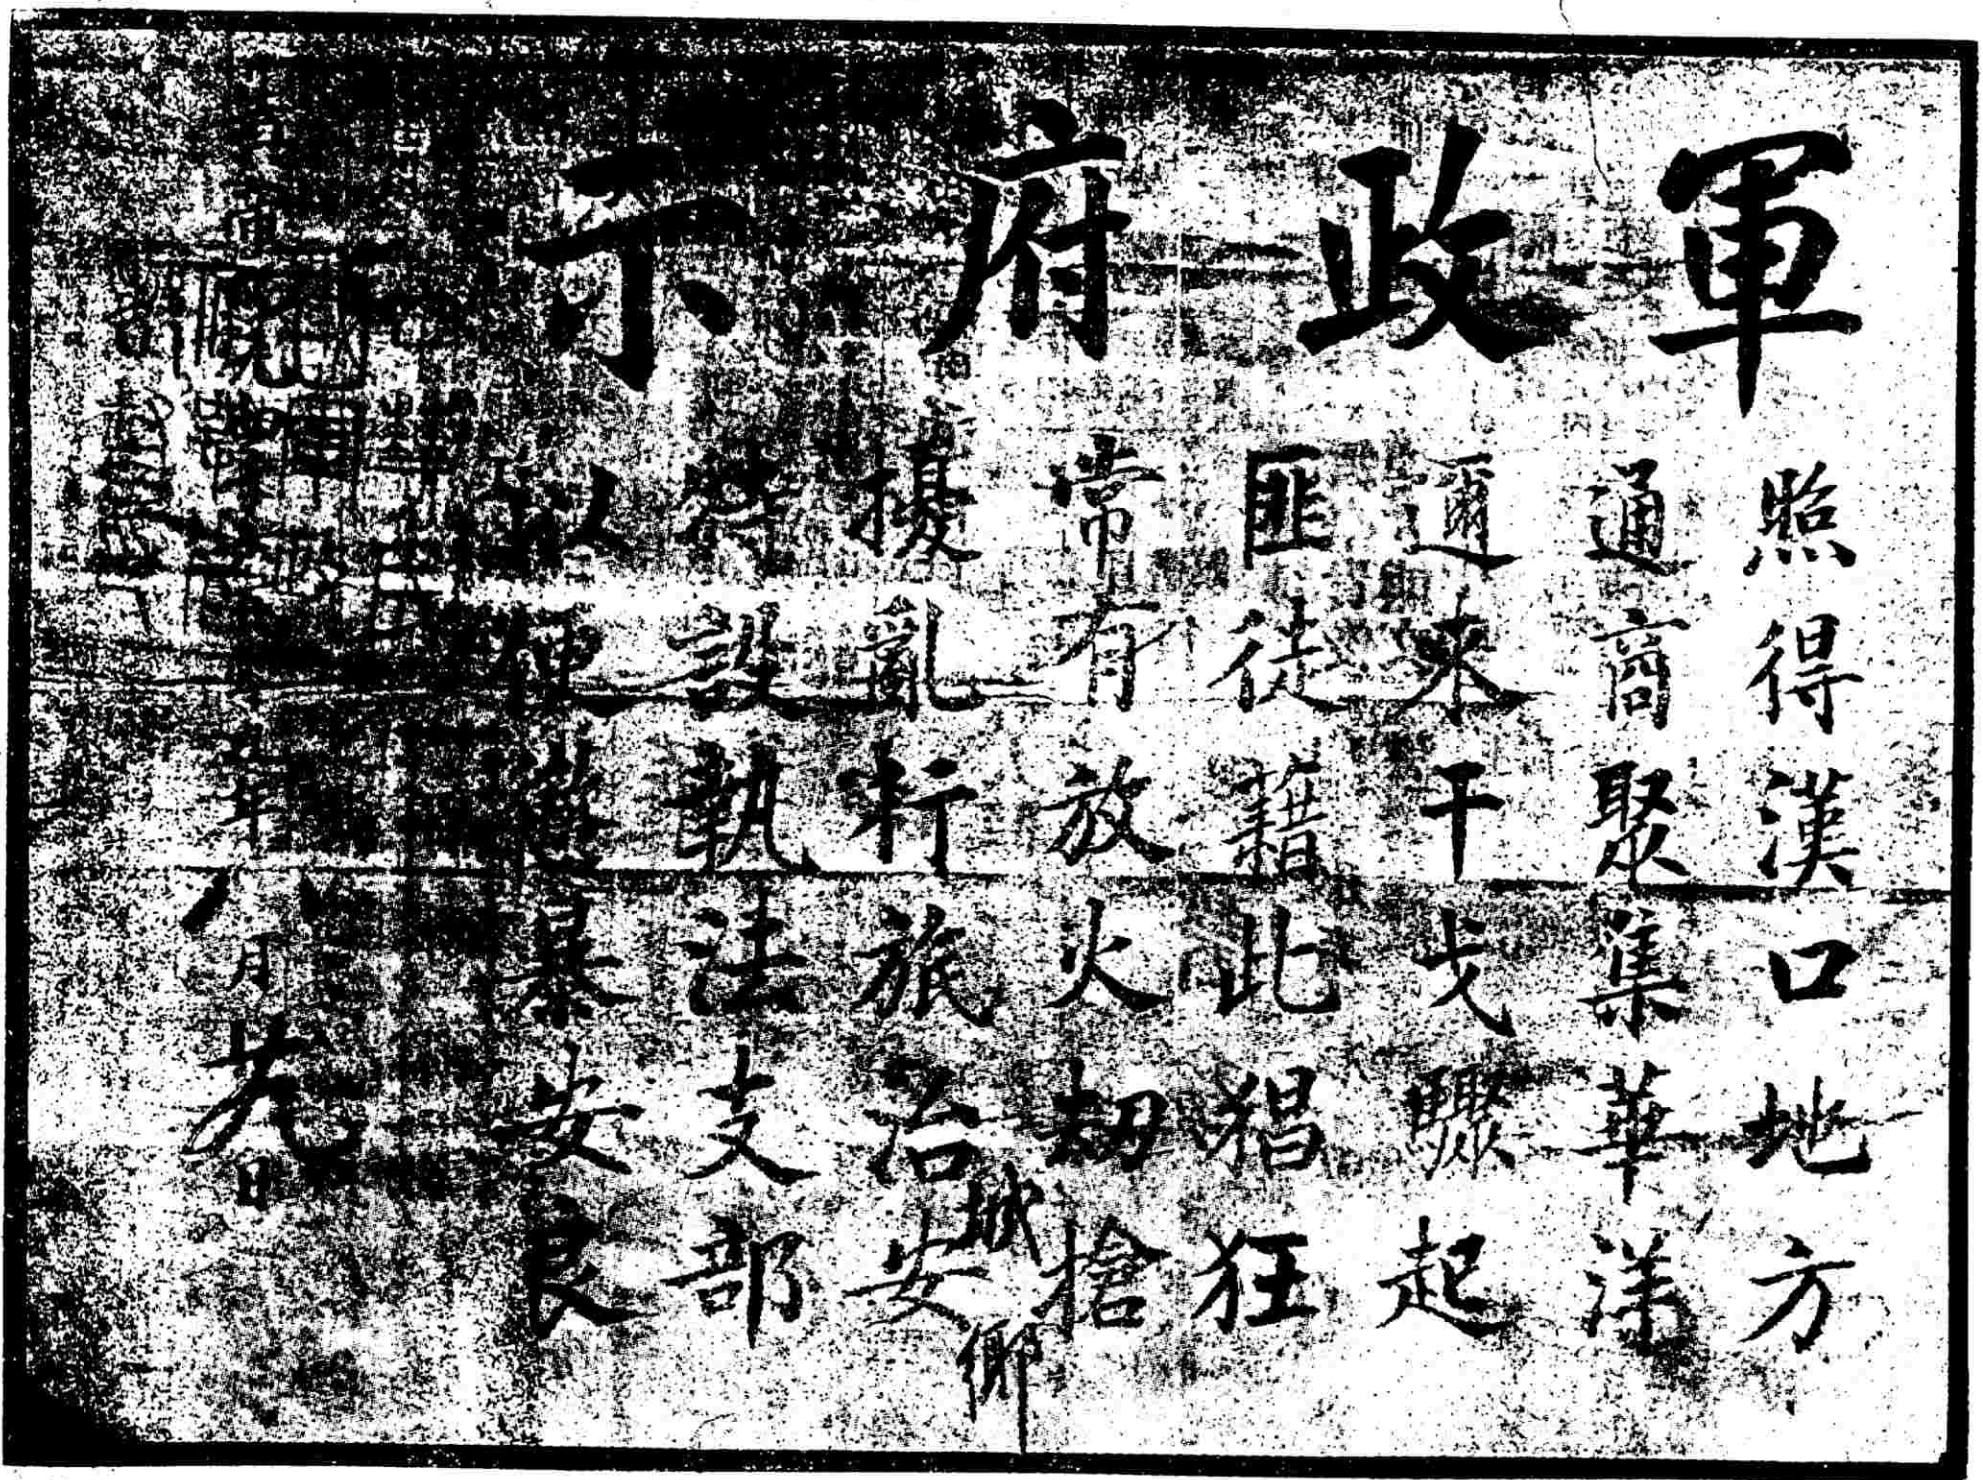 軍政府示
照得漢口地方
通商聚集華洋
邇來干戈驟起
匪徒藉此猖狂
常有放火刼搶
城鄉
擾亂行旅治安
特設執法支部
以便暴安良
年八月廿九日